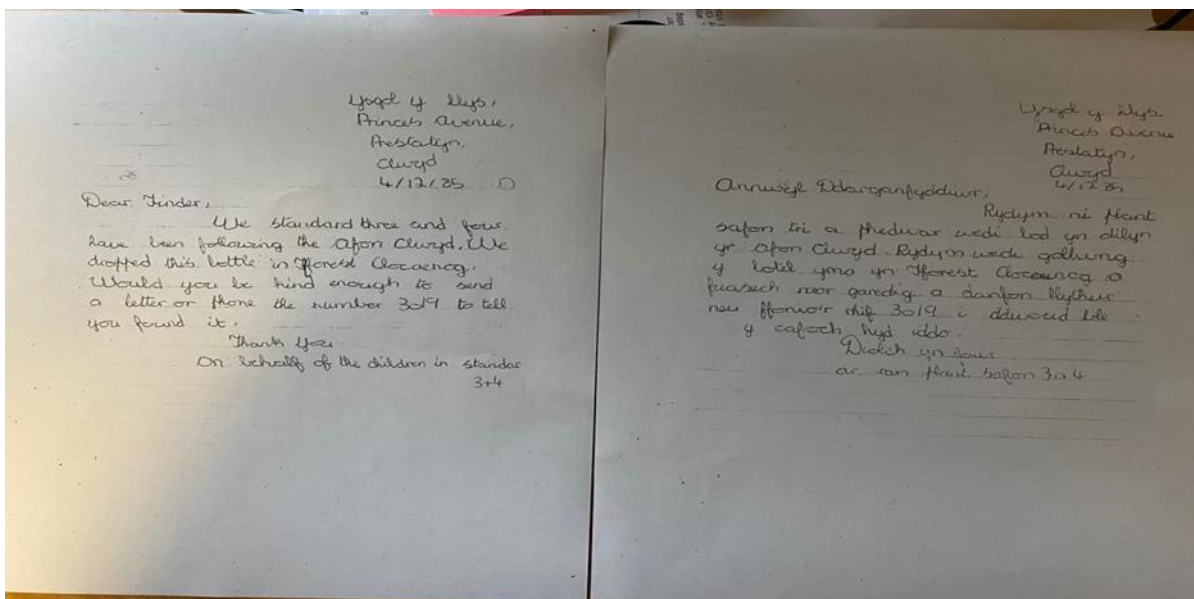 Ysgol y Llys,
Princes Avenue,
Prestatyn,
Clwyd
4/12/85
Dear Finder,
We standard three and four
have been following the Afon Clwyd. We
dropped this bottle in Fforest Clocaenog.
Would you be kind enough to send
a letter or phone the number 3019 to tell
you found it.
Thank You
On behalf of the children in standar
3+4
Ysgol y Llys.
Princes Avenue
Prestatyn,
Clwyd
4/12 85
Annwyl Ddarganfyddiwr,
Rydym ni plant
safon tri a phedwar wedi bod yn dilyn
yr Afon Clwyd. Rydym wedi gollwng
y botel yma yn Fforest Clocaenog a
fuasech mor garedig a danfon llythur
neu ffonio'r rhif 3019 i ddweud ble
y cafoch hyd iddo.
Diolch yn fawr
ar ran plant safon 3 a 4